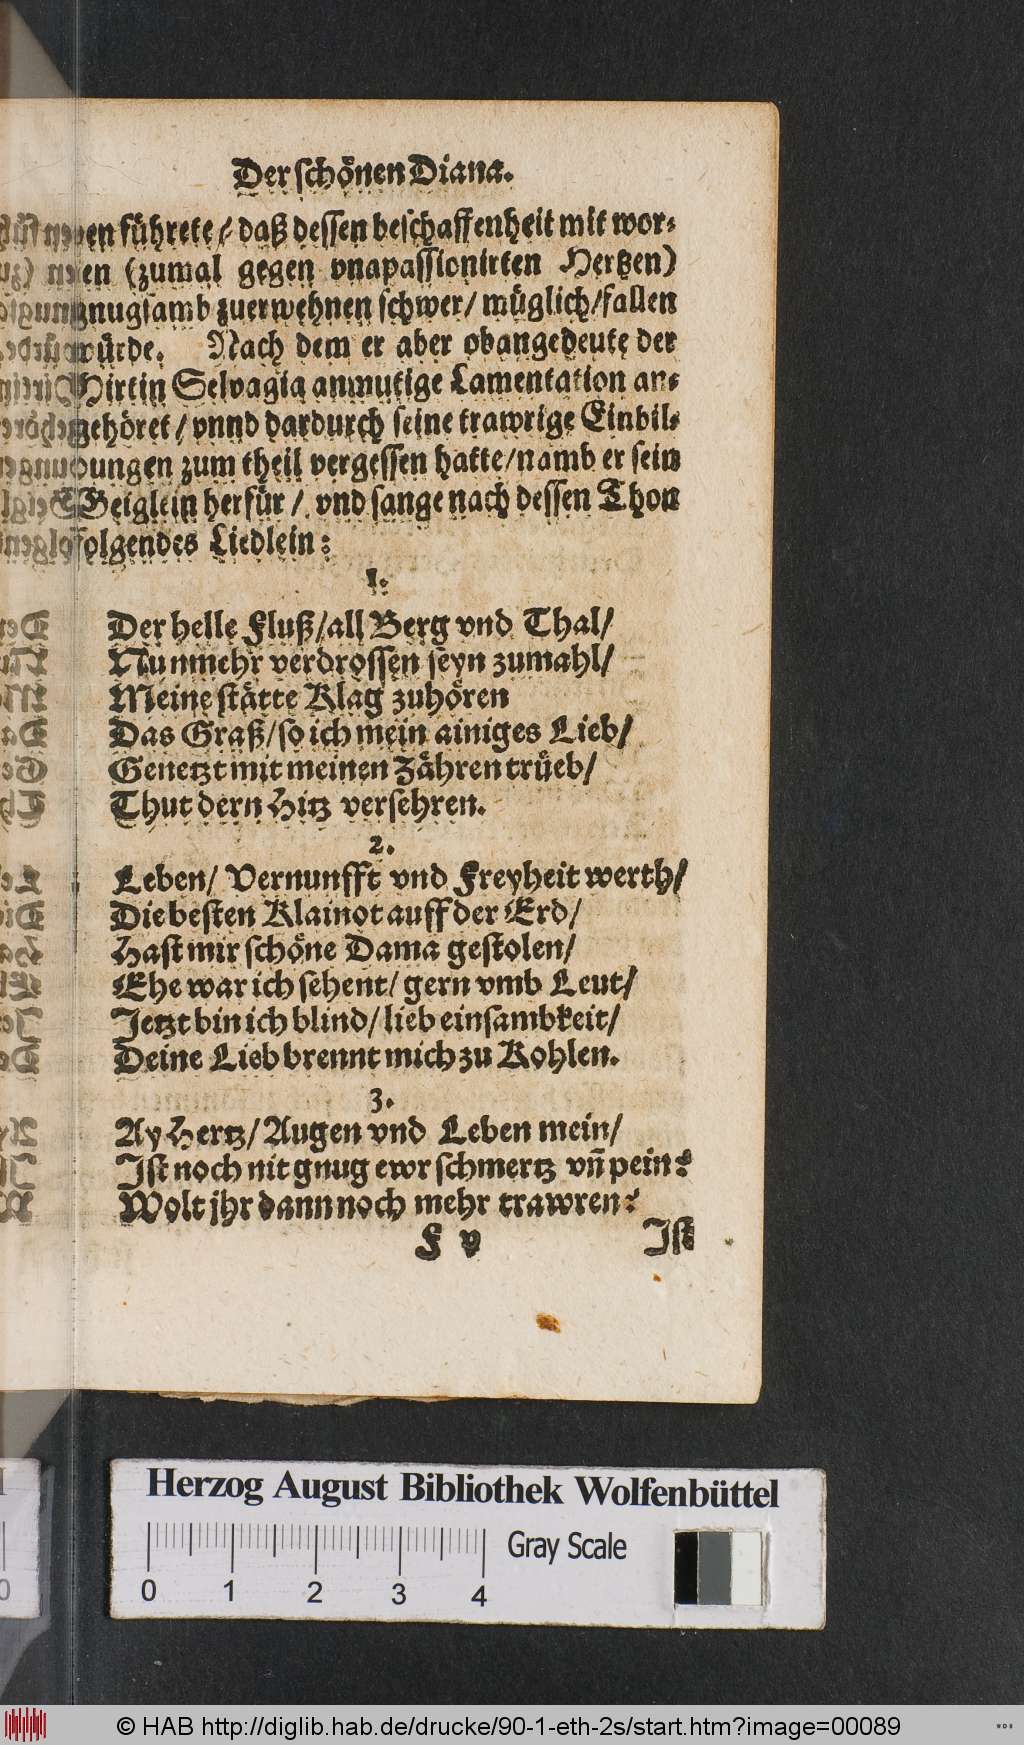 Der schönen Diana.
en führete / daß dessen beschaffenheit mit wor⸗
en (zumal gegen vnapassionirten Hertzen)
gnugsamb zuerwehnen schwer / müglich / fallen
würde. Nach dem er aber obangedeute der
Hirtin Selvagia anmutige Lamentation an⸗
gehöret / vnnd dardurch seine trawrige Einbil⸗
dungen zum theil vergessen hatte / namb er sein
Geiglein herfür / vnd sange nach dessen Thon
folgendes Liedlein:
1.
Der helle Fluß / all Berg vnd Thal /
Nunmehr verdrossen seyn zumahl /
Meine stätte Klag zuhören
Das Graß / so ich mein ainiges Lieb /
Genetzt mit meinen Zähren trüeb /
Thut dern Hitz versehren.
2.
Leben / Vernunfft vnd Freyheit werth /
Die besten Klainot auff der Erd /
Hast mir schöne Dama gestolen /
Ehe war ich sehent / gern vmb Leut /
Jetzt bin ich blind / lieb einsambkeit /
Deine Lieb brennt mich zu Kohlen.
3.
Ay Hertz / Augen vnd Leben mein /
Ist noch nit gnug ewr schmertz vñ pein?
Wolt jhr dann noch mehr trawren?
F v Ist
Herzog August Bibliothek Wolfenbüttel
Gray Scale
0 1 2 3 4
© HAB http://diglib.hab.de/drucke/90-1-eth-2s/start.htm?image=00089